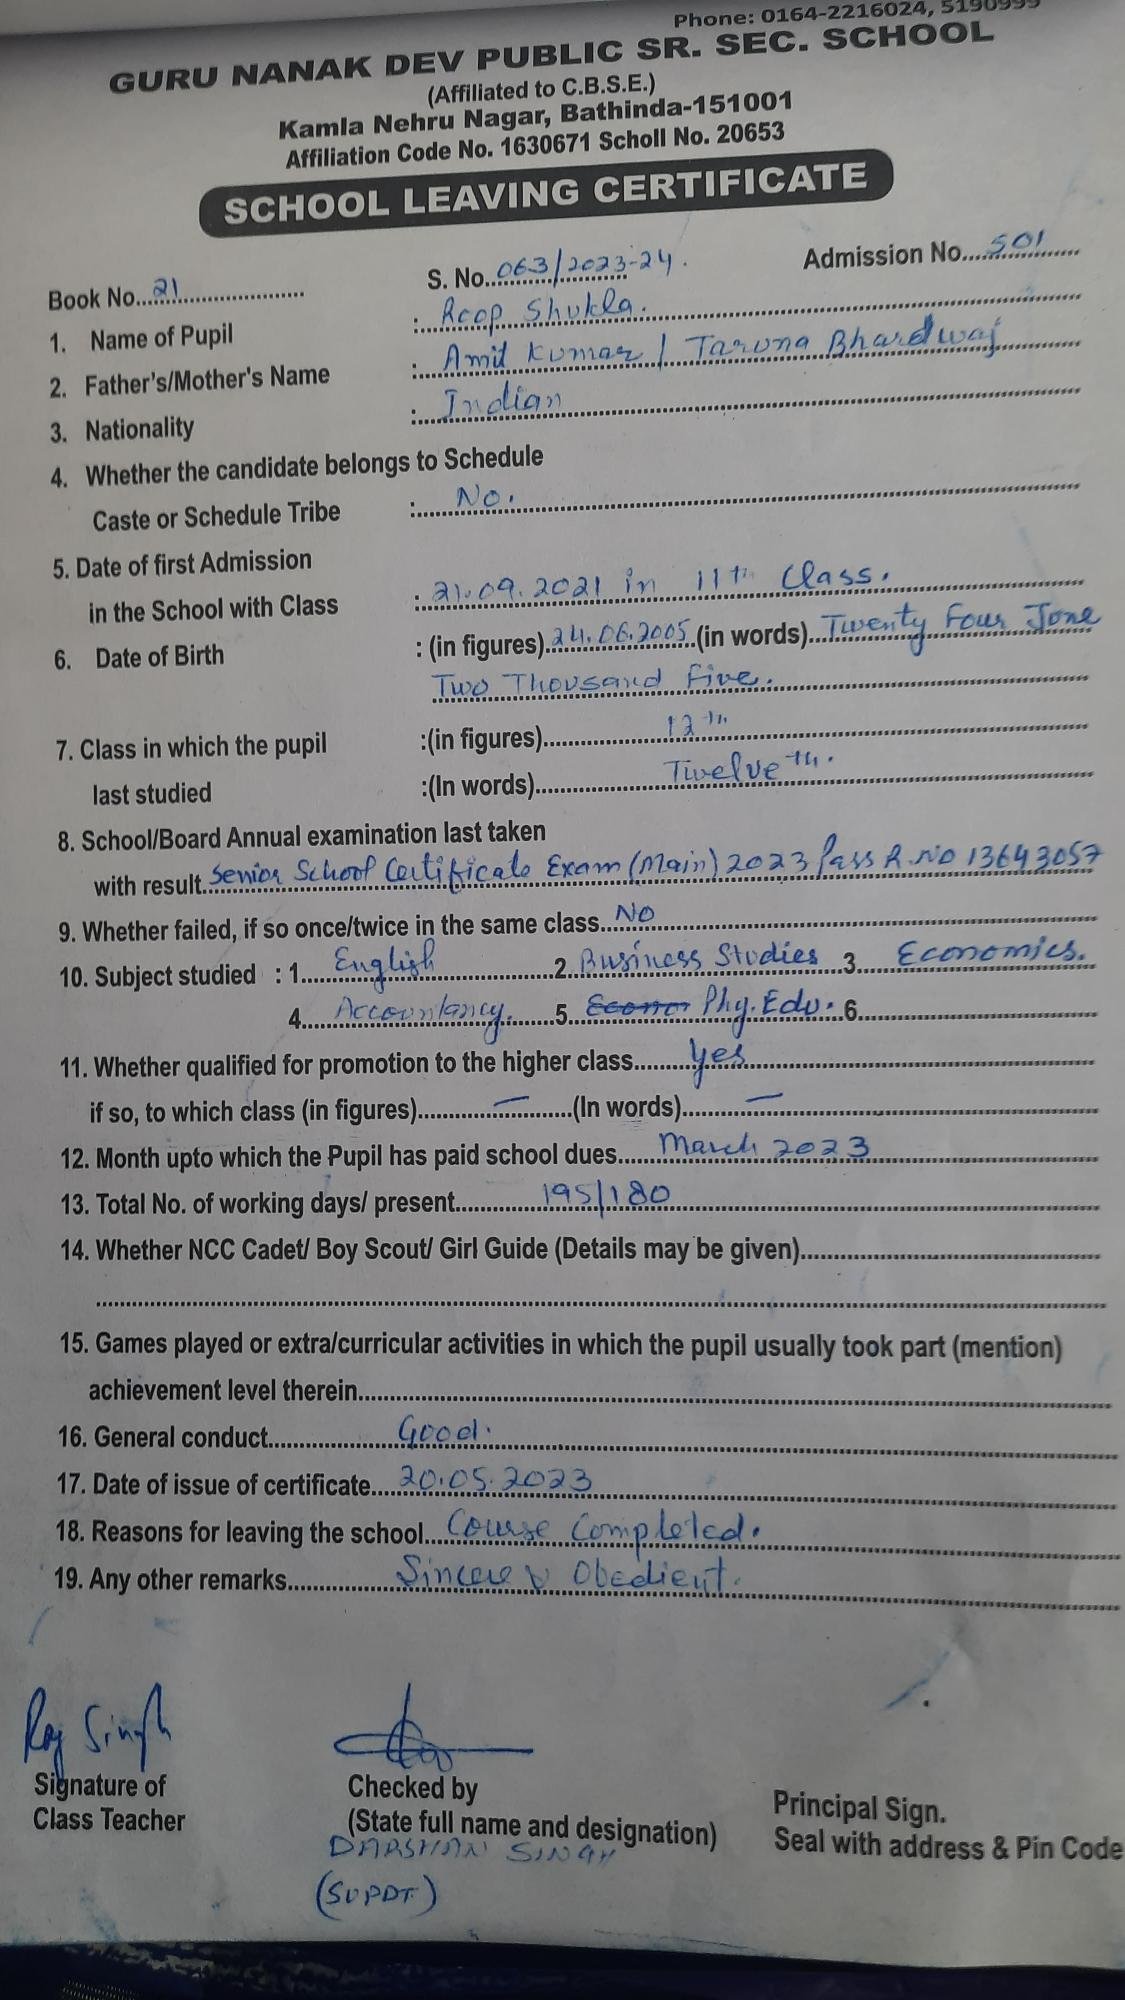 Phone: 0164-2216024, 5190999
GURU NANAK DEV PUBLIC SR. SEC. SCHOOL
(Affiliated to C.B.S.E.)
Kamla Nehru Nagar, Bathinda-151001
Affiliation Code No. 1630671 Scholl No. 20653
SCHOOL LEAVING CERTIFICATE
Book No. 21 S. No. 063/2023-24. Admission No. 501
1. Name of Pupil : Roop Shukla.
2. Father's/Mother's Name : Amit Kumar / Taruna Bhardwaj
3. Nationality : Indian
4. Whether the candidate belongs to Schedule
Caste or Schedule Tribe : No.
5. Date of first Admission
in the School with Class : 21.09.2021 in 11th Class.
6. Date of Birth : (in figures) 24.06.2005 (in words) Twenty Four June
Two Thousand Five.
7. Class in which the pupil :(in figures) 12th
last studied :(In words) Twelveth.
8. School/Board Annual examination last taken
with result. Senior School Certificate Exam (Main) 2023 Pass R.No 13643057
9. Whether failed, if so once/twice in the same class. No
10. Subject studied : 1. English 2. Business Studies 3. Economics.
4. Accountancy. 5. Econor Phy. Edu. 6.
11. Whether qualified for promotion to the higher class. Yes
if so, to which class (in figures) — (In words) —
12. Month upto which the Pupil has paid school dues. March 2023
13. Total No. of working days/ present. 195/180
14. Whether NCC Cadet/ Boy Scout/ Girl Guide (Details may be given)
15. Games played or extra/curricular activities in which the pupil usually took part (mention)
achievement level therein
16. General conduct. Good.
17. Date of issue of certificate. 20.05.2023
18. Reasons for leaving the school. Course Completed.
19. Any other remarks. Sincere & Obedient.
Raj Singh
Signature of Checked by Principal Sign.
Class Teacher (State full name and designation) Seal with address & Pin Code
DARSHAN SINGH
(SUPDT)